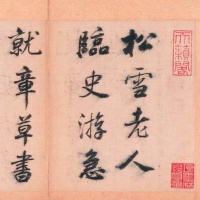 松雪老人
臨史游急
就章草書